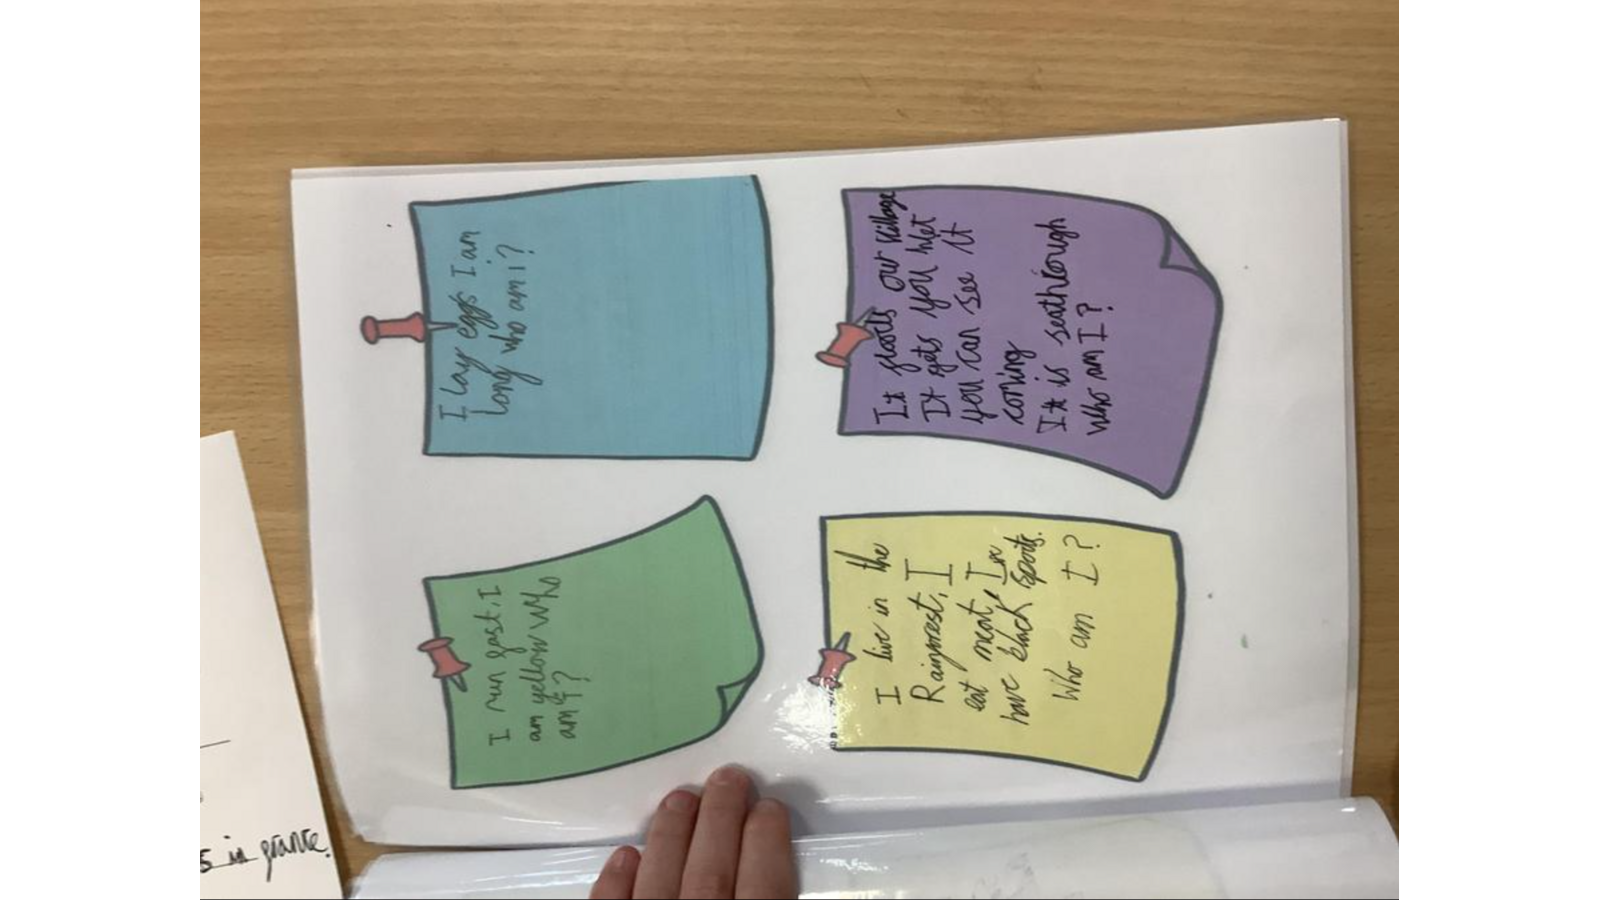 I lay eggs I am
long who am i?
It floods our village
It gets you wet
you can see it
coming
It is seathrough
Who am I?
I run fast, I
am yellow who
am I?
I live in the
Rainforest, I
eat meat, I
have black spots.
Who am I?
in